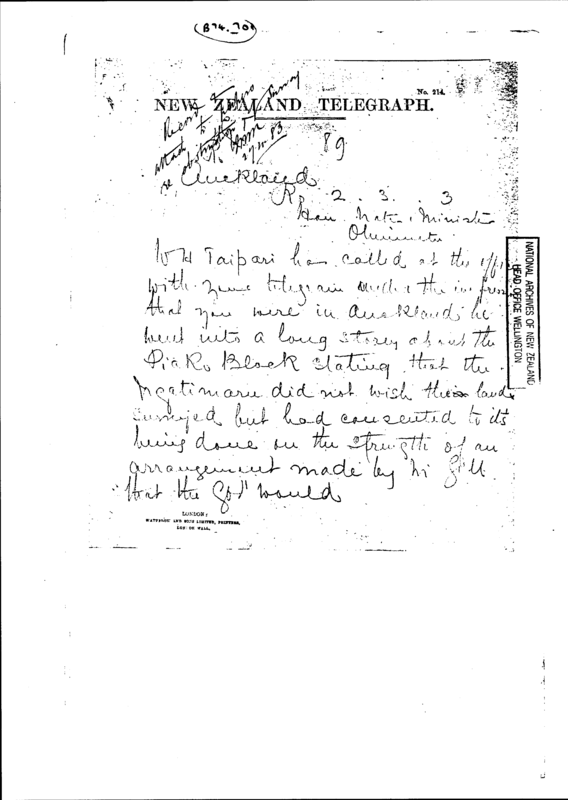 (B74.70)
No. 214.
NEW ZEALAND TELEGRAPH.
Record &
attach to papers
re obstruction to survey
27.10.83
89
Auckland
2 . 3 . 3
Hon. Native Minister
WH Taipari has called at the
with your telegram under the
that you were in Auckland he
went into a long story about the
Piako Block stating that the
Ngatimaru did not wish their lands
surveyed but had consented to its
being done on the strength of an
arrangement made by Mr Gill
that the Govt would
LONDON:
WATERLOW AND SONS LIMITED, PRINTERS,
LONDON WALL.
NATIONAL ARCHIVES OF NEW ZEALAND
HEAD OFFICE WELLINGTON